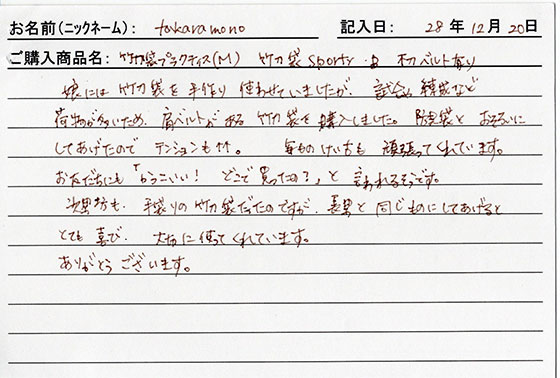 お名前(ニックネーム): takaramono 記入日: 28年12月20日
ご購入商品名: 竹刀袋プラクティス(M) 竹刀袋 Sporty 肩ベルト有り
娘には 竹刀袋を手作り 使わせていましたが、試合、錬成など
荷物が多いため、肩ベルトがある 竹刀袋を購入しました。防具袋と おそろいに
してあげたので テンションも↑↑。 毎日のけい古も 頑張ってくれています。
お友だちにも「かっこいい! どこで買ったの?」と 言われるそうです。
次男坊も、手製りの竹刀袋だったのですが、長男と同じものにしてあげると
とても喜び、大切に使ってくれています。
ありがとうございます。